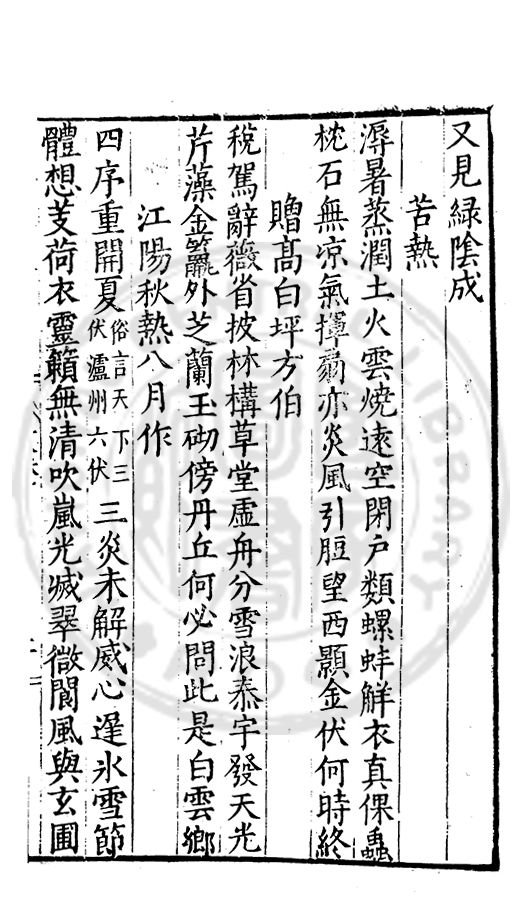 又見綠陰成
苦熱
溽暑蒸潤土火雲燒遠空閉戶類螺蚌觧衣真倮蟲
枕石無凉氣揮扇亦炎風引脰望西顥金伏何時終
贈髙白坪方伯
稅駕辭薇省披林構草堂虛舟分雪浪泰宇發天光
芹藻金籯外芝蘭玉砌傍丹丘何必問此是白雲鄉
江陽秋熱八月作
四序重開夏俗言天下三伏瀘州六伏三炎未解威心遑氷雪節
體想芰荷衣靈籟無清吹嵐光減翠微閬風與玄圃